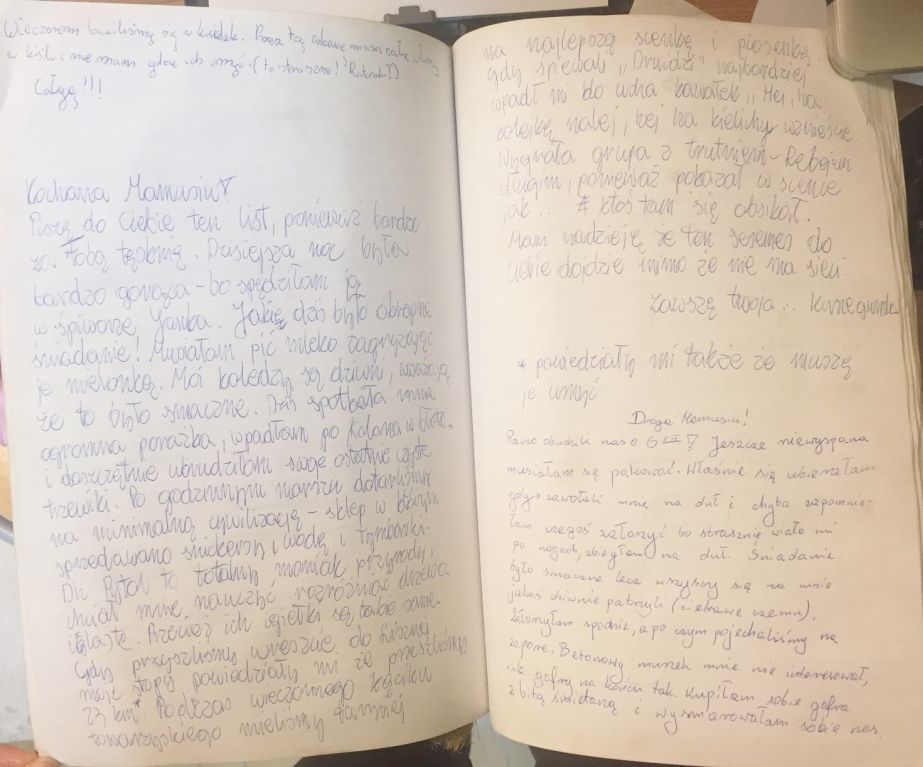 Wieczorem bawiliśmy się w kisielek. Przez tą zabawę mam całą głowę
w kiślu i nie mam gdzie ich umyć. (to straszne! Ratunku!)
Całuję!!!
Kochana Mamusiu!
Piszę do Ciebie ten list, ponieważ bardzo
za Tobą tęsknię. Dzisiejsza noc była
bardzo gorąca - bo spędziłam ją
w śpiworze Janka. Jakie dziś było okropne
śniadanie! Musiałam pić mleko zagryzając
je mielonką. Moi koledzy są dziwni, uważają
że to było smaczne. Dziś spotkała mnie
ogromna porażka, wpadłam po kolana w błoto.
i doszczętnie ubrudziłam swoje ostatnie czyste
trzewiki. Po godzinnym marszu dotarliśmy
na minimalną cywilizację - sklep w którym
sprzedawano snickersy, wodę i tymbarki.
Dh. Pytol to totalny maniak przyrody,
chciał mnie nauczyć rozróżniać drzewa
iglaste. Przecież ich igiełki są takie same.
Gdy przyszliśmy wreszcie do
moje stopy powiedziały mi że przeszliśmy
23 km*. Podczas wieczornego kącika
towarzyskiego mieliśmy
na najlepszą scenkę i piosenkę,
gdy śpiewali "Druidzi" najbardziej
wpadł mi do ucha kawałek "Hej, na
kolejkę nalej, hej na kielichy wznieście
Wygrała grupa z trutniem - Rębajem
długim, ponieważ pokazał w scence
jak... ktoś tam się obsikał.
Mam nadzieję że ten seremes do
ciebie dojdzie mimo że nie ma sieci.
zawszę twoja... Kunegunda
* powiedziały mi także że muszę
je umyć.
Droga Mamusiu!
Rano obudzili nas o 6 Jeszcze niewyspana
musiałam się pakować. Właśnie się ubierałam
gdy zawołali mnie na duł i chyba zapomnia-
łam czegoś załorzyć bo strasznie wiało mi
po nogach, zbiegłam na duł. Śniadanie
było smaczne lecz wszyscy się na mnie
jakoś dziwnie patrzyli (ciekawe czemu).
Załorzyłam spodnie, a po czym pojechaliśmy na
zaporę. Betonowy murek mnie nie interesował,
ale gofry na końcu tak. Kupiłam sobie gofra
z bitą śmietaną i wysmarowałam sobie nos.